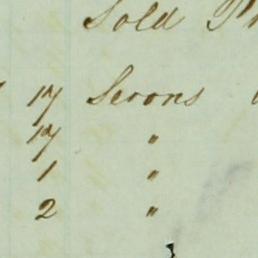 Sold
17 Serons
17 "
1 "
2 "